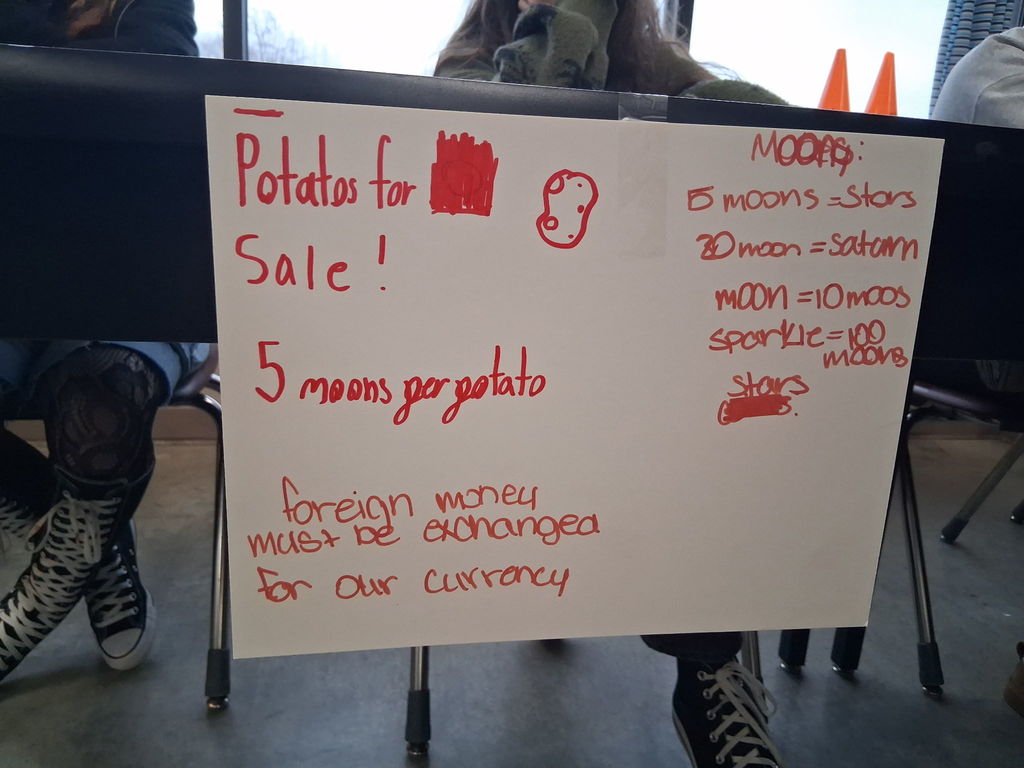 Potatos for
Sale!
5 moons per potato
foreign money
must be exchanged
for our currency
Moons:
5 moons = Stars
20 moon = saturn
moon = 10 moos
sparkle = 100
moons
stars